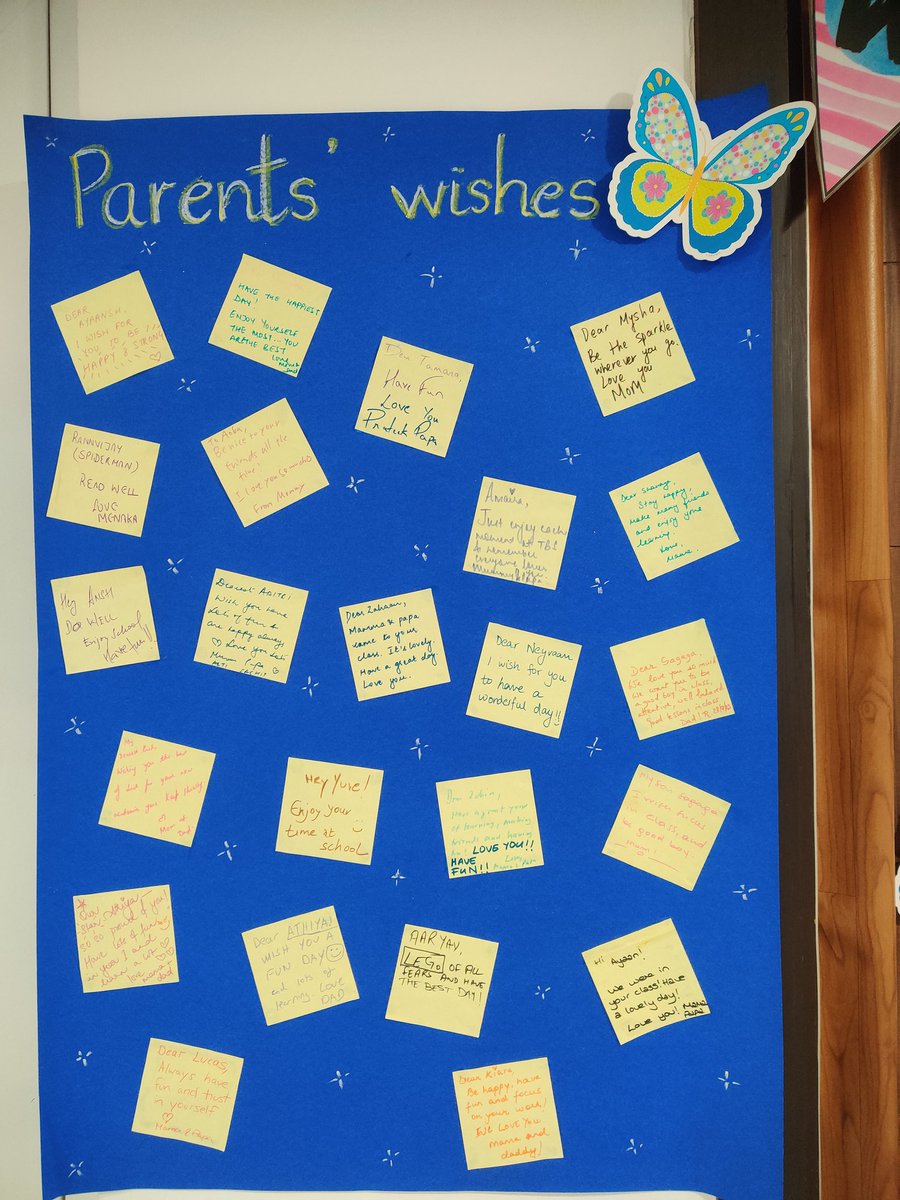 Parents' wishes
DEAR
AYAANSH,
I WISH FOR
YOU TO BE
HAPPY & STRONG
HAVE THE HAPPIEST
DAY!
ENJOY YOURSELF
THE MOST... YOU
ARE THE BEST
Dear Tamara,
Have Fun
Love You
Prateek Papa
Dear Mysha,
Be the sparkle
wherever you go.
Love you
MOM
RANNVIJAY
(SPIDERMAN)
READ WELL
LOVE
MENAKA
Be nice to your
friends all the
time!
I love you so much
From Mummy
Amaira,
Just enjoy each
moment at TBS
& remember
everyone loves
Dear
Stay happy,
make many friends
and enjoy your
learning.
Love,
Mama.
Hey ANSH
DO WELL
Enjoy School
Have fun!!
Dearest
Wish you have
lots of fun &
are happy always
Love you
Mumma Papa
Dear
Mamma & papa
came to your
class. It's lovely.
Have a great day.
Love you.
Dear Neyraan
I wish for you
to have a
wonderful day!!
Dear Sagaga,
We love you so much
we want you to be
a good boy in class,
attentive, well behaved
good lessons in class.
Dad!
My
Wishing you the best
of luck for your new
academic year. Keep
Mom &
Dad
Hey Yuve!
Enjoy your
time at
school
Dear
Have a great year
of learning, making
friends and having
fun! LOVE YOU!!
HAVE
FUN!! Love,
Mama & Papa
My Son Sagaga
I wish focus
in class, and
be good boy.
mum!
Our
star
so so proud of you!
Have lots of fun
in year 1 and
learn a lot
love mom &
dad
Dear ATHIYA!
WISH YOU A
FUN DAY
and lots of
learning.. LOVE
DAD
AARYAV,
LEGO OF ALL
FEARS AND HAVE
THE BEST DAY!
Hi Ayaan!
We were in
your class! Have
a lovely day!
Love you! Mama
Dear Lucas,
Always have
fun and trust
in yourself
Mamma & Papa
Dear Kiara,
Be happy, have
fun and focus
on your work!
Love You
mama and
daddy!